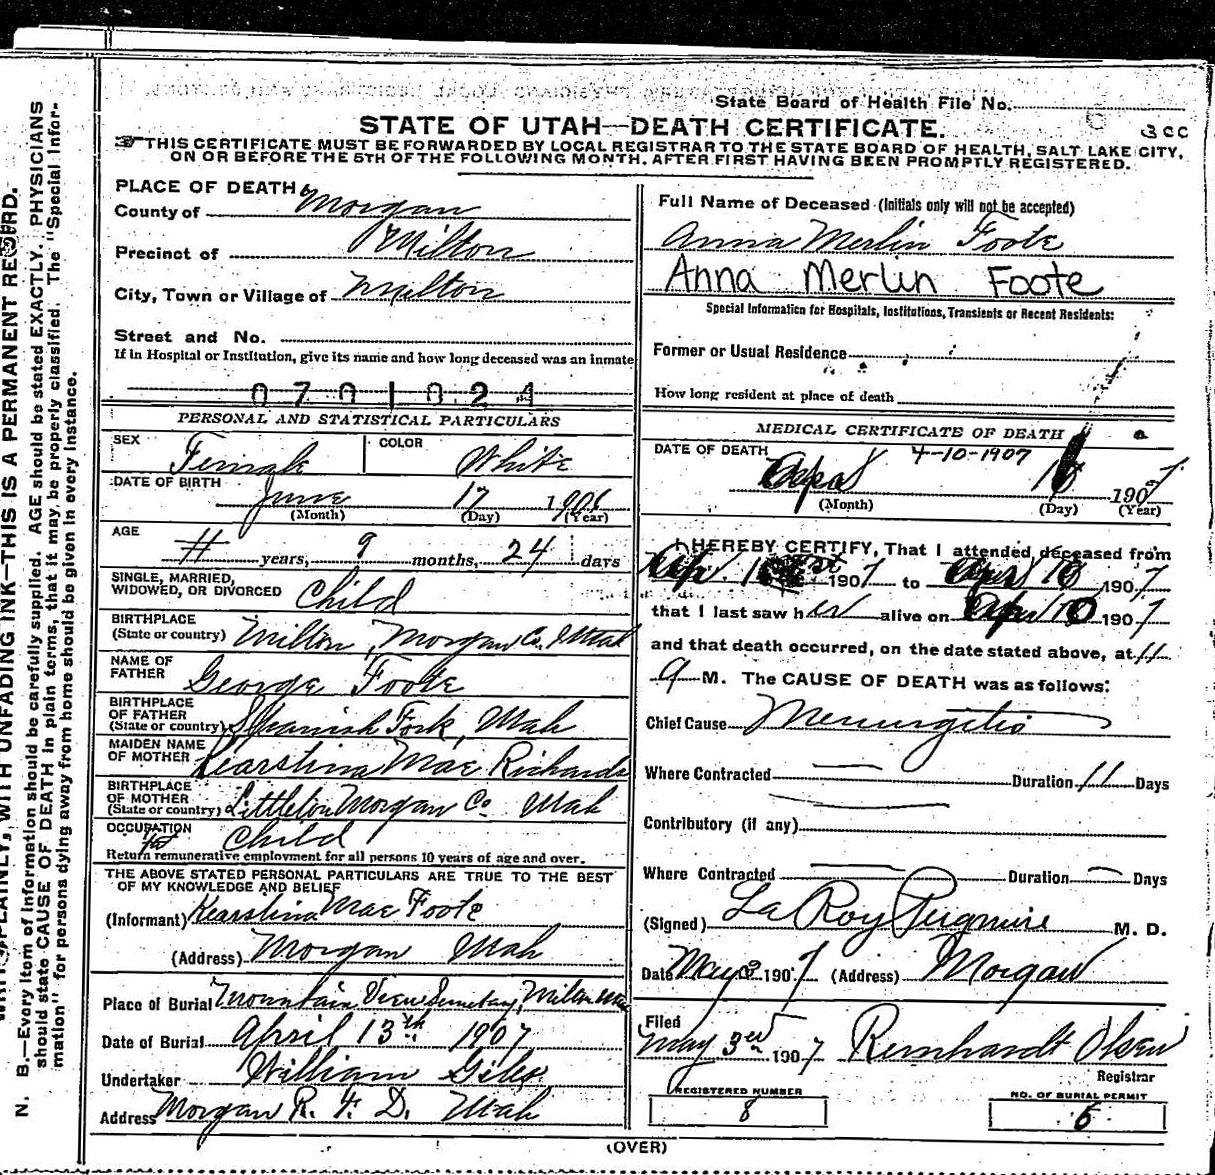 State Board of Health File No.
3CC
STATE OF UTAH—DEATH CERTIFICATE.
THIS CERTIFICATE MUST BE FORWARDED BY LOCAL REGISTRAR TO THE STATE BOARD OF HEALTH, SALT LAKE CITY,
ON OR BEFORE THE 5TH OF THE FOLLOWING MONTH, AFTER FIRST HAVING BEEN PROMPTLY REGISTERED.
PLACE OF DEATH
County of Morgan
Precinct of Milton
City, Town or Village of Milton
Street and No.
If in Hospital or Institution, give its name and how long deceased was an inmate
0701024
PERSONAL AND STATISTICAL PARTICULARS
SEX Female COLOR White
DATE OF BIRTH June 17 1906
(Month) (Day) (Year)
AGE years, 9 months, 24 days
SINGLE, MARRIED,
WIDOWED, OR DIVORCED Child
BIRTHPLACE
(State or country) Milton, Morgan Co. Utah
NAME OF
FATHER George Foote
BIRTHPLACE
OF FATHER
(State or country) Spanish Fork, Utah
MAIDEN NAME
OF MOTHER Kearstina Mae Richards
BIRTHPLACE
OF MOTHER
(State or country) Littleton Morgan Co. Utah
OCCUPATION Child
Return remunerative employment for all persons 10 years of age and over.
THE ABOVE STATED PERSONAL PARTICULARS ARE TRUE TO THE BEST
OF MY KNOWLEDGE AND BELIEF
(Informant) Kearstina Mae Foote
(Address) Morgan Utah
Place of Burial Mountain View Semetary, Milton
Date of Burial April 13th 1907
Undertaker William Giles
Address Morgan R. F. D. Utah
Full Name of Deceased (Initials only will not be accepted)
Anna Merlin Foote
Anna Merlin Foote
Special Information for Hospitals, Institutions, Transients or Recent Residents:
Former or Usual Residence
How long resident at place of death
MEDICAL CERTIFICATE OF DEATH
DATE OF DEATH 4-10-1907
April 10 1907
(Month) (Day) (Year)
I HEREBY CERTIFY, That I attended deceased from
Apr. 1907 to Apr 10 1907
that I last saw her alive on Apr 10 1907
and that death occurred, on the date stated above, at 11
a M. The CAUSE OF DEATH was as follows:
Chief Cause Meningitis
Where Contracted — Duration 11 Days
Contributory (if any)
Where Contracted — Duration — Days
(Signed) La Roy Pugmire M. D.
Date May 1907 (Address) Morgan
Filed
May 3rd 1907 Reinhardt Olsen
Registrar
REGISTERED NUMBER
8
NO. OF BURIAL PERMIT
6
(OVER)
PLAINLY, WITH UNFADING INK—THIS IS A PERMANENT RECORD.
N. B.—Every item of information should be carefully supplied. AGE should be stated EXACTLY. PHYSICIANS
should state CAUSE OF DEATH in plain terms, that it may be properly classified. The "Special Infor-
mation" for persons dying away from home should be given in every instance.